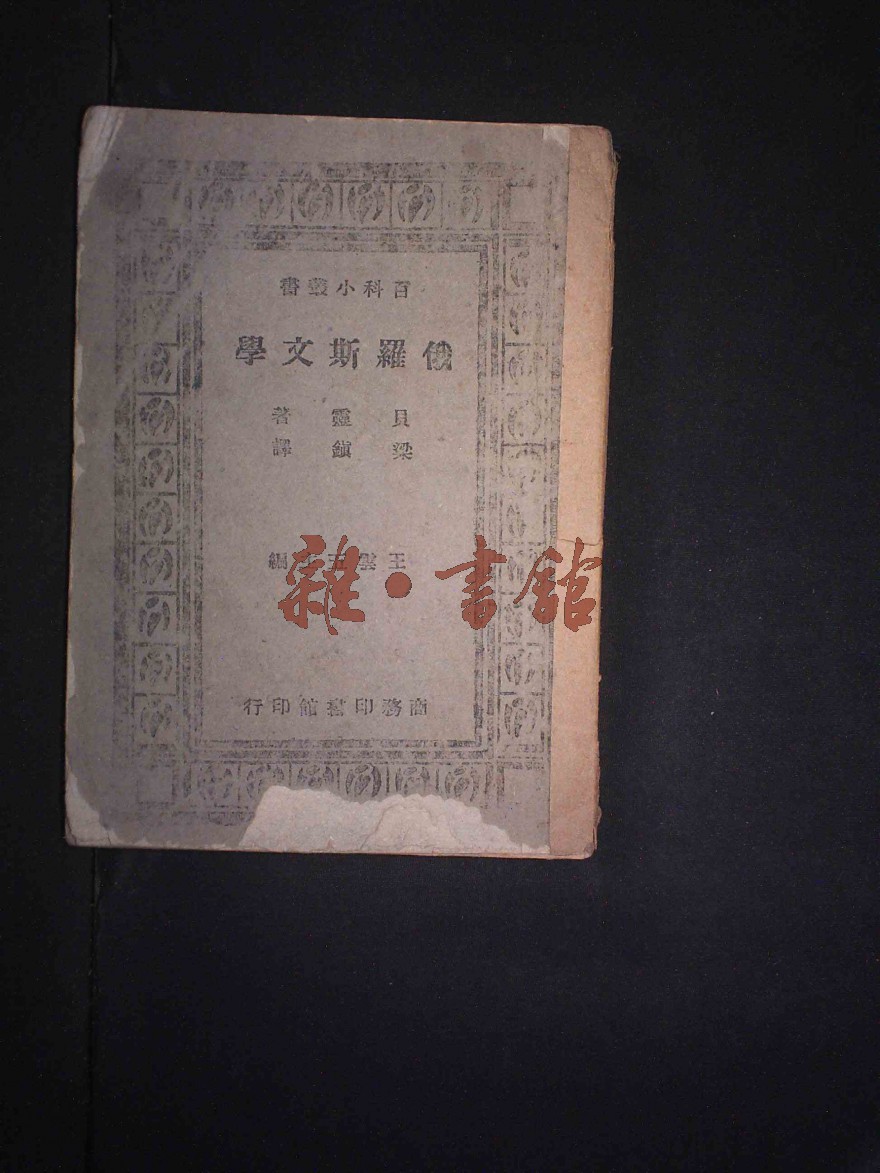 百科小叢書
俄羅斯文學
貝靈著
梁鎮譯
王雲五主編
雜·書館
商務印書館印行